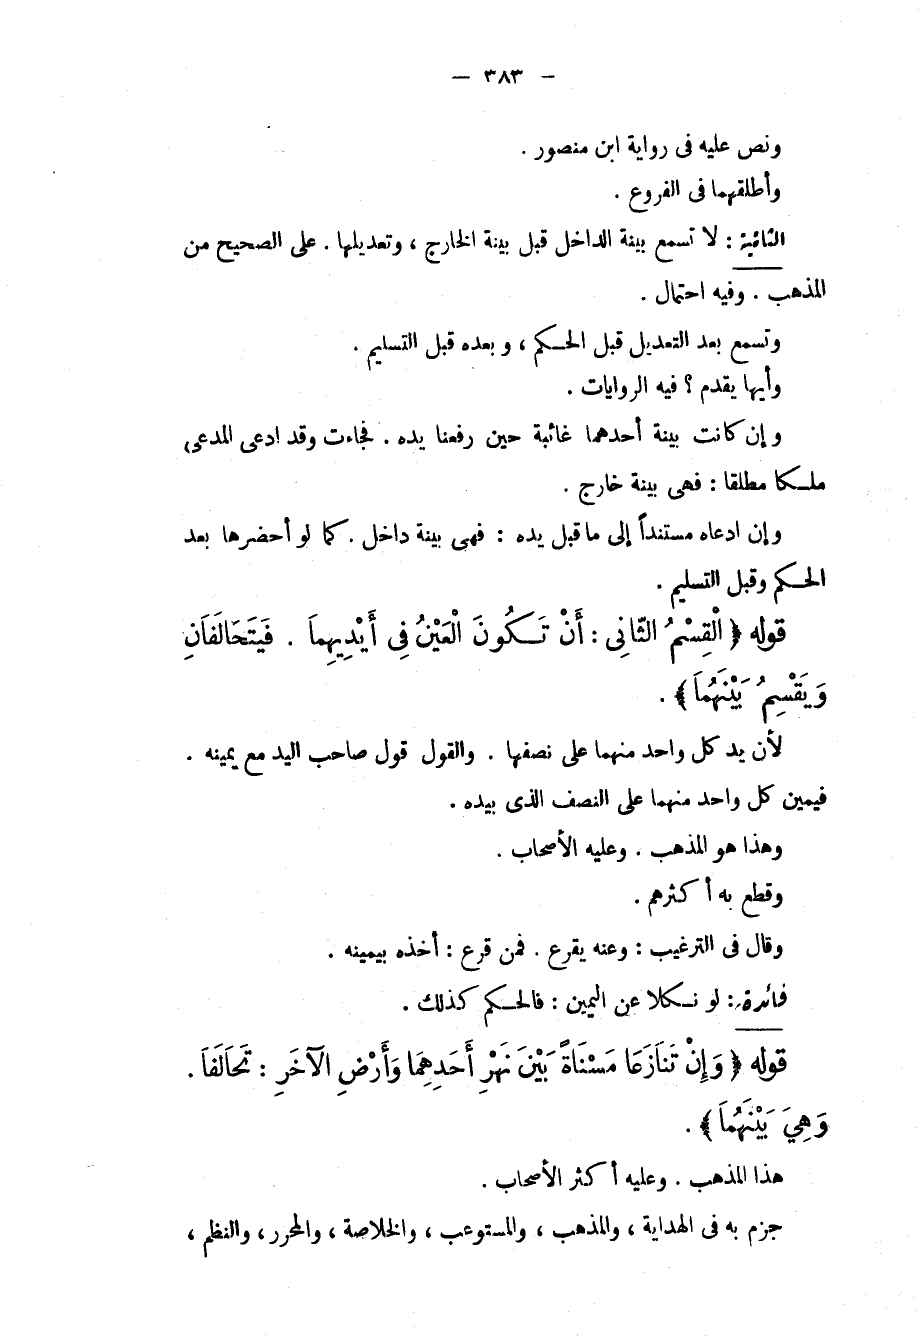 — ٣٨٣ —
ونص عليه فى رواية ابن منصور .
وأطلقهما فى الفروع .
الثانية : لا تسمع بينة الداخل قبل بينة الخارج ، وتعديلها . على الصحيح من
المذهب . وفيه احتمال .
وتسمع بعد التعديل قبل الحكم ، وبعده قبل التسليم .
وأيها يقدم ؟ فيه الروايات .
وإن كانت بينة أحدهما غائبة حين رفعنا يده . فجاءت وقد ادعى المدعى
ملكا مطلقا : فهى بينة خارج .
وإن ادعاه مستنداً إلى ماقبل يده : فهى بينة داخل . كما لو أحضرها بعد
الحكم وقبل التسليم .
قوله ﴿ الْقِسْمُ الثَّانِى : أَنْ تَكُونَ الْعَيْنُ فِى أَيْدِيهِمَا . فَيَتَحَالَفَانِ
وَيَقْسِمُ بَيْنَهُمَا ﴾ .
لأن يد كل واحد منهما على نصفها . والقول قول صاحب اليد مع يمينه .
فيمين كل واحد منهما على النصف الذى بيده .
وهذا هو المذهب . وعليه الأصحاب .
وقطع به أكثرهم .
وقال فى الترغيب : وعنه يقرع . فمن قرع : أخذه بيمينه .
فائدة : لو نكلا عن اليمين : فالحكم كذلك .
قوله ﴿ وَإِنْ تَنَازَعَا مَسْنَاةً بَيْنَ نَهْرِ أَحَدِهِمَا وَأَرْضِ الآخَرِ : تَحَالَفَا .
وَهِيَ بَيْنَهُمَا ﴾ .
هذا المذهب . وعليه أكثر الأصحاب .
جزم به فى الهداية ، والمذهب ، والمستوعب ، والخلاصة ، والمحرر ، والنظم ،